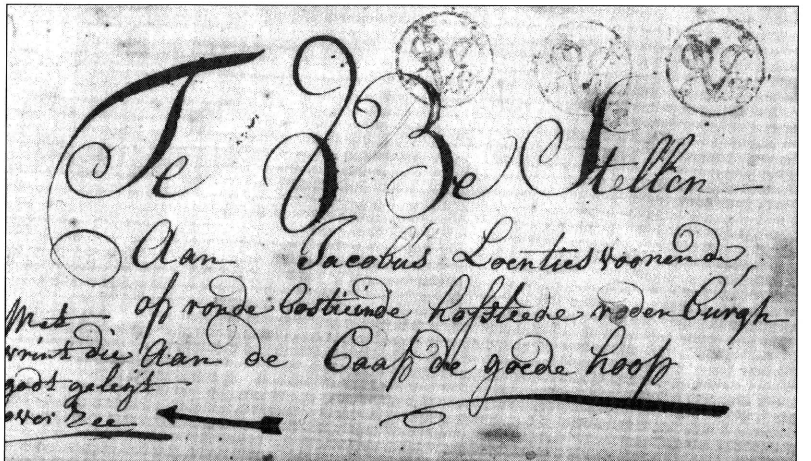 Te Be Stellen
Aan Jacobús Loenties woonende,
op ronde bostieinde hofsteede roden búrgh
Aan de Caap de goede hoop
Met
vrint die
godt geleijt
over Zee